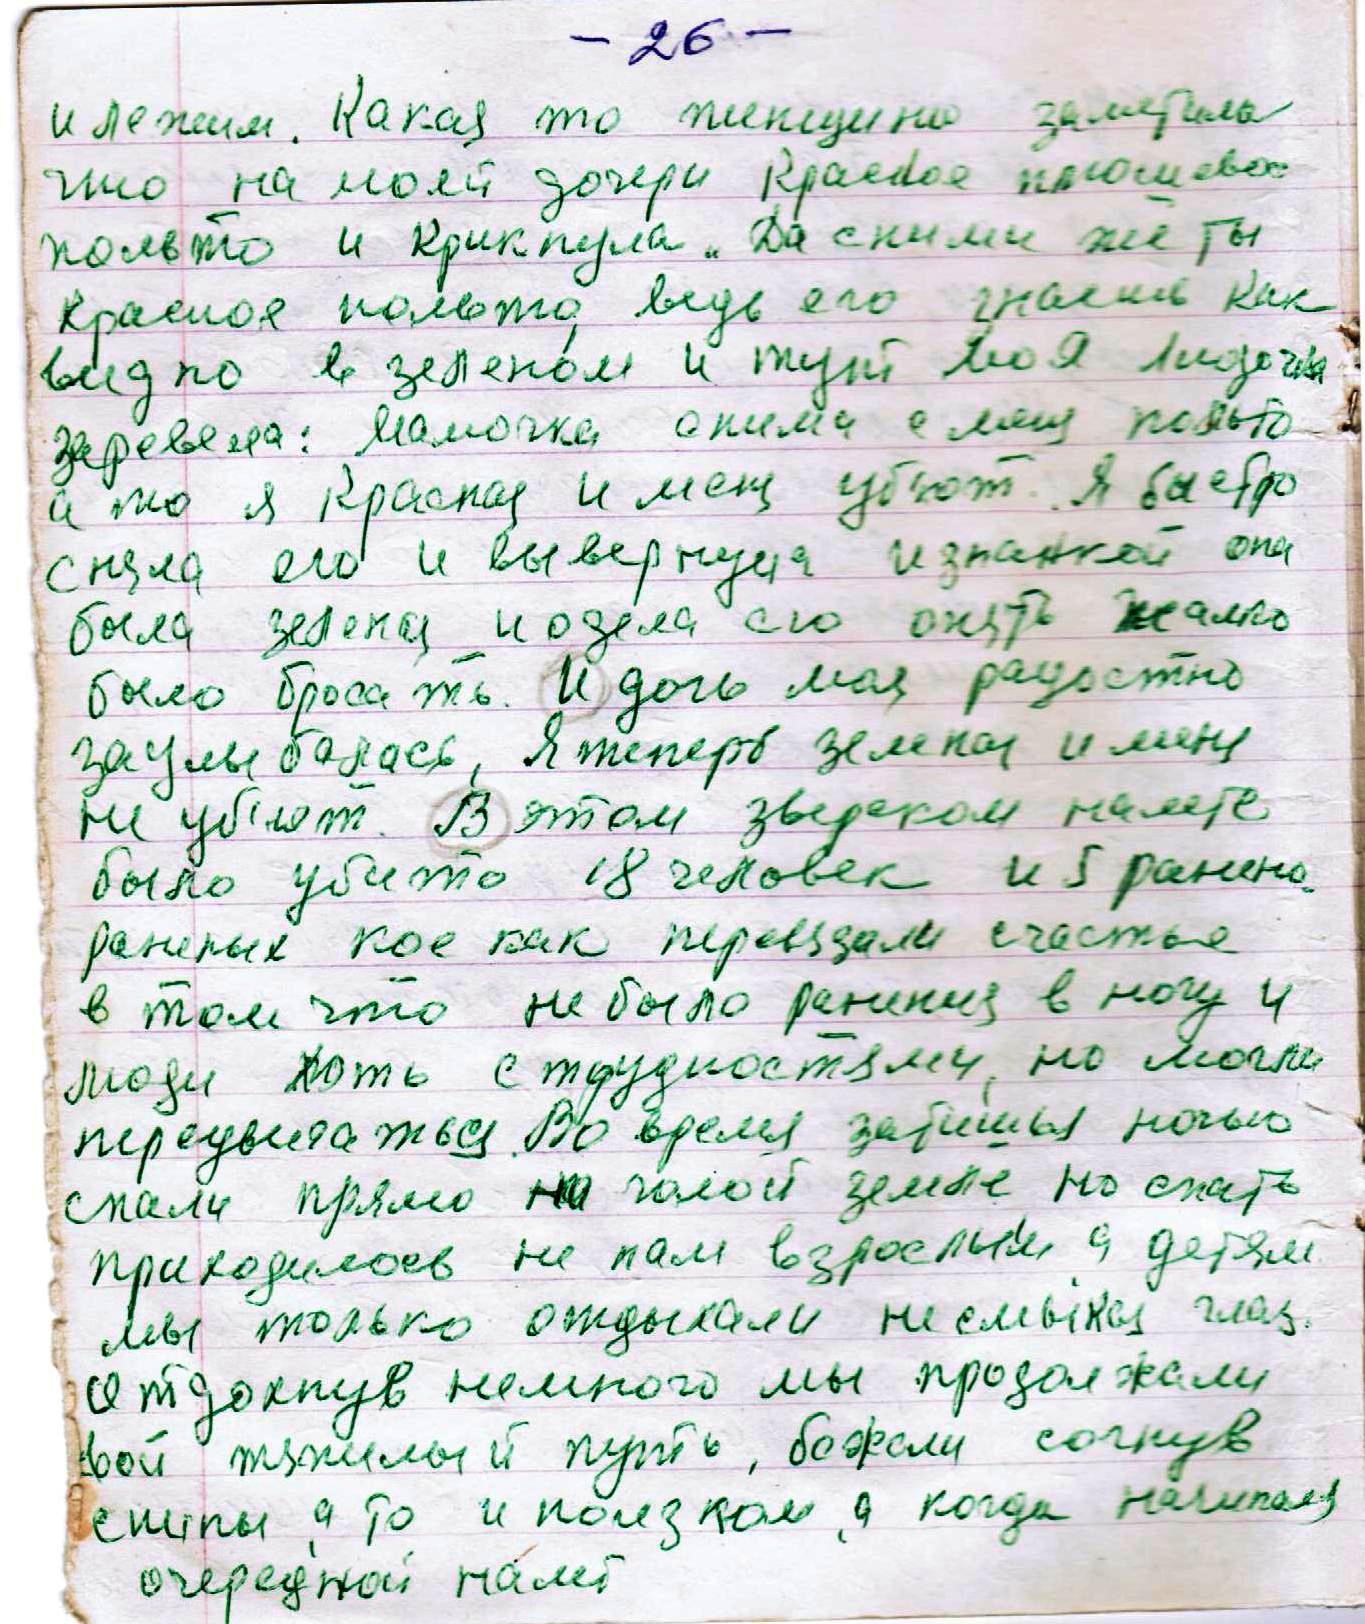 - 26 -
и лежим. Какая то женщина заметила
что на моей дочери красное плюшевое
польто и крикнула „Да сними же ты
красное польто, ведь его
видно в зеленом и тут моя Лидочка
заревела: Мамочка сними с меня польто
а то я красная и меня убьют. Я быстро
сняла его и вывернула изнанкой она
была зеленая и одела его опять жалко
было бросать. И дочь моя радостно
заулыбалась, Я теперь зеленая и меня
не убьют. В этом зверском налете
было убито 18 человек и 5 ранено.
раненых кое как перевязали счастье
в том что не было ранения в ногу и
люди хоть с трудностями, но могли
передвигаться. Во время затишья ночью
спали прямо на голой земле но спать
приходилось не нам взрослым а детям
мы только отдыхали не смыкая глаз.
Отдохнув немного мы продолжали
свой тяжилый путь, бежали согнув
спины а то и ползком, а когда начинался
очередной налет